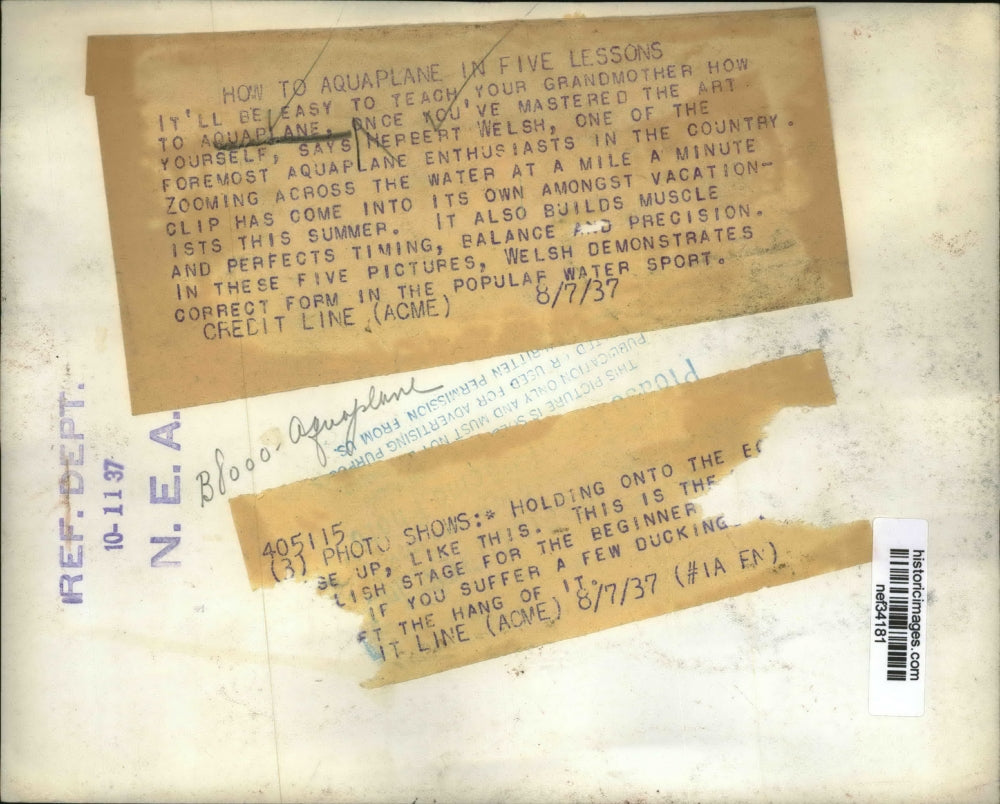 HOW TO AQUAPLANE IN FIVE LESSONS
IT'LL BE EASY TO TEACH YOUR GRANDMOTHER HOW
TO AQUAPLANE, ONCE YOU'VE MASTERED THE ART
YOURSELF, SAYS HERBERT WELSH, ONE OF THE
FOREMOST AQUAPLANE ENTHUSIASTS IN THE COUNTRY.
ZOOMING ACROSS THE WATER AT A MILE A MINUTE
CLIP HAS COME INTO ITS OWN AMONGST VACATION-
ISTS THIS SUMMER. IT ALSO BUILDS MUSCLE
AND PERFECTS TIMING, BALANCE AND PRECISION.
IN THESE FIVE PICTURES, WELSH DEMONSTRATES
CORRECT FORM IN THE POPULAR WATER SPORT.
CREDIT LINE (ACME) 8/7/37
THIS PICTURE IS
PUBLICATION ONLY AND MUST NOT
USED FOR ADVERTISING
WRITTEN PERMISSION FROM US
B8000- aquaplane
REF. DEPT.
10-11 37
N. E. A.
405115
(3) PHOTO SHOWS:* HOLDING ONTO THE
SE UP, LIKE THIS. THIS IS THE
LISH STAGE FOR THE BEGINNER
IF YOU SUFFER A FEW DUCKING
ET THE HANG OF IT.
IT LINE (ACME) 8/7/37 (#1A EN)
historicimages.com
nef34181